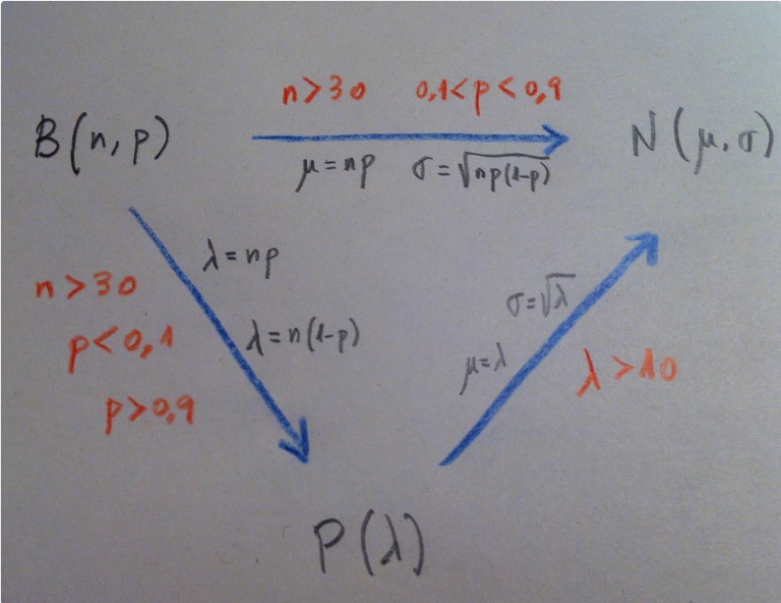 n>30 0,1<p<0,9
B(n,p) N(μ,σ)
μ=np σ=√np(1-p)
λ=np
n>30
σ=√λ
λ=n(1-p)
p<0,1
μ=λ
λ>10
p>0,9
P(λ)